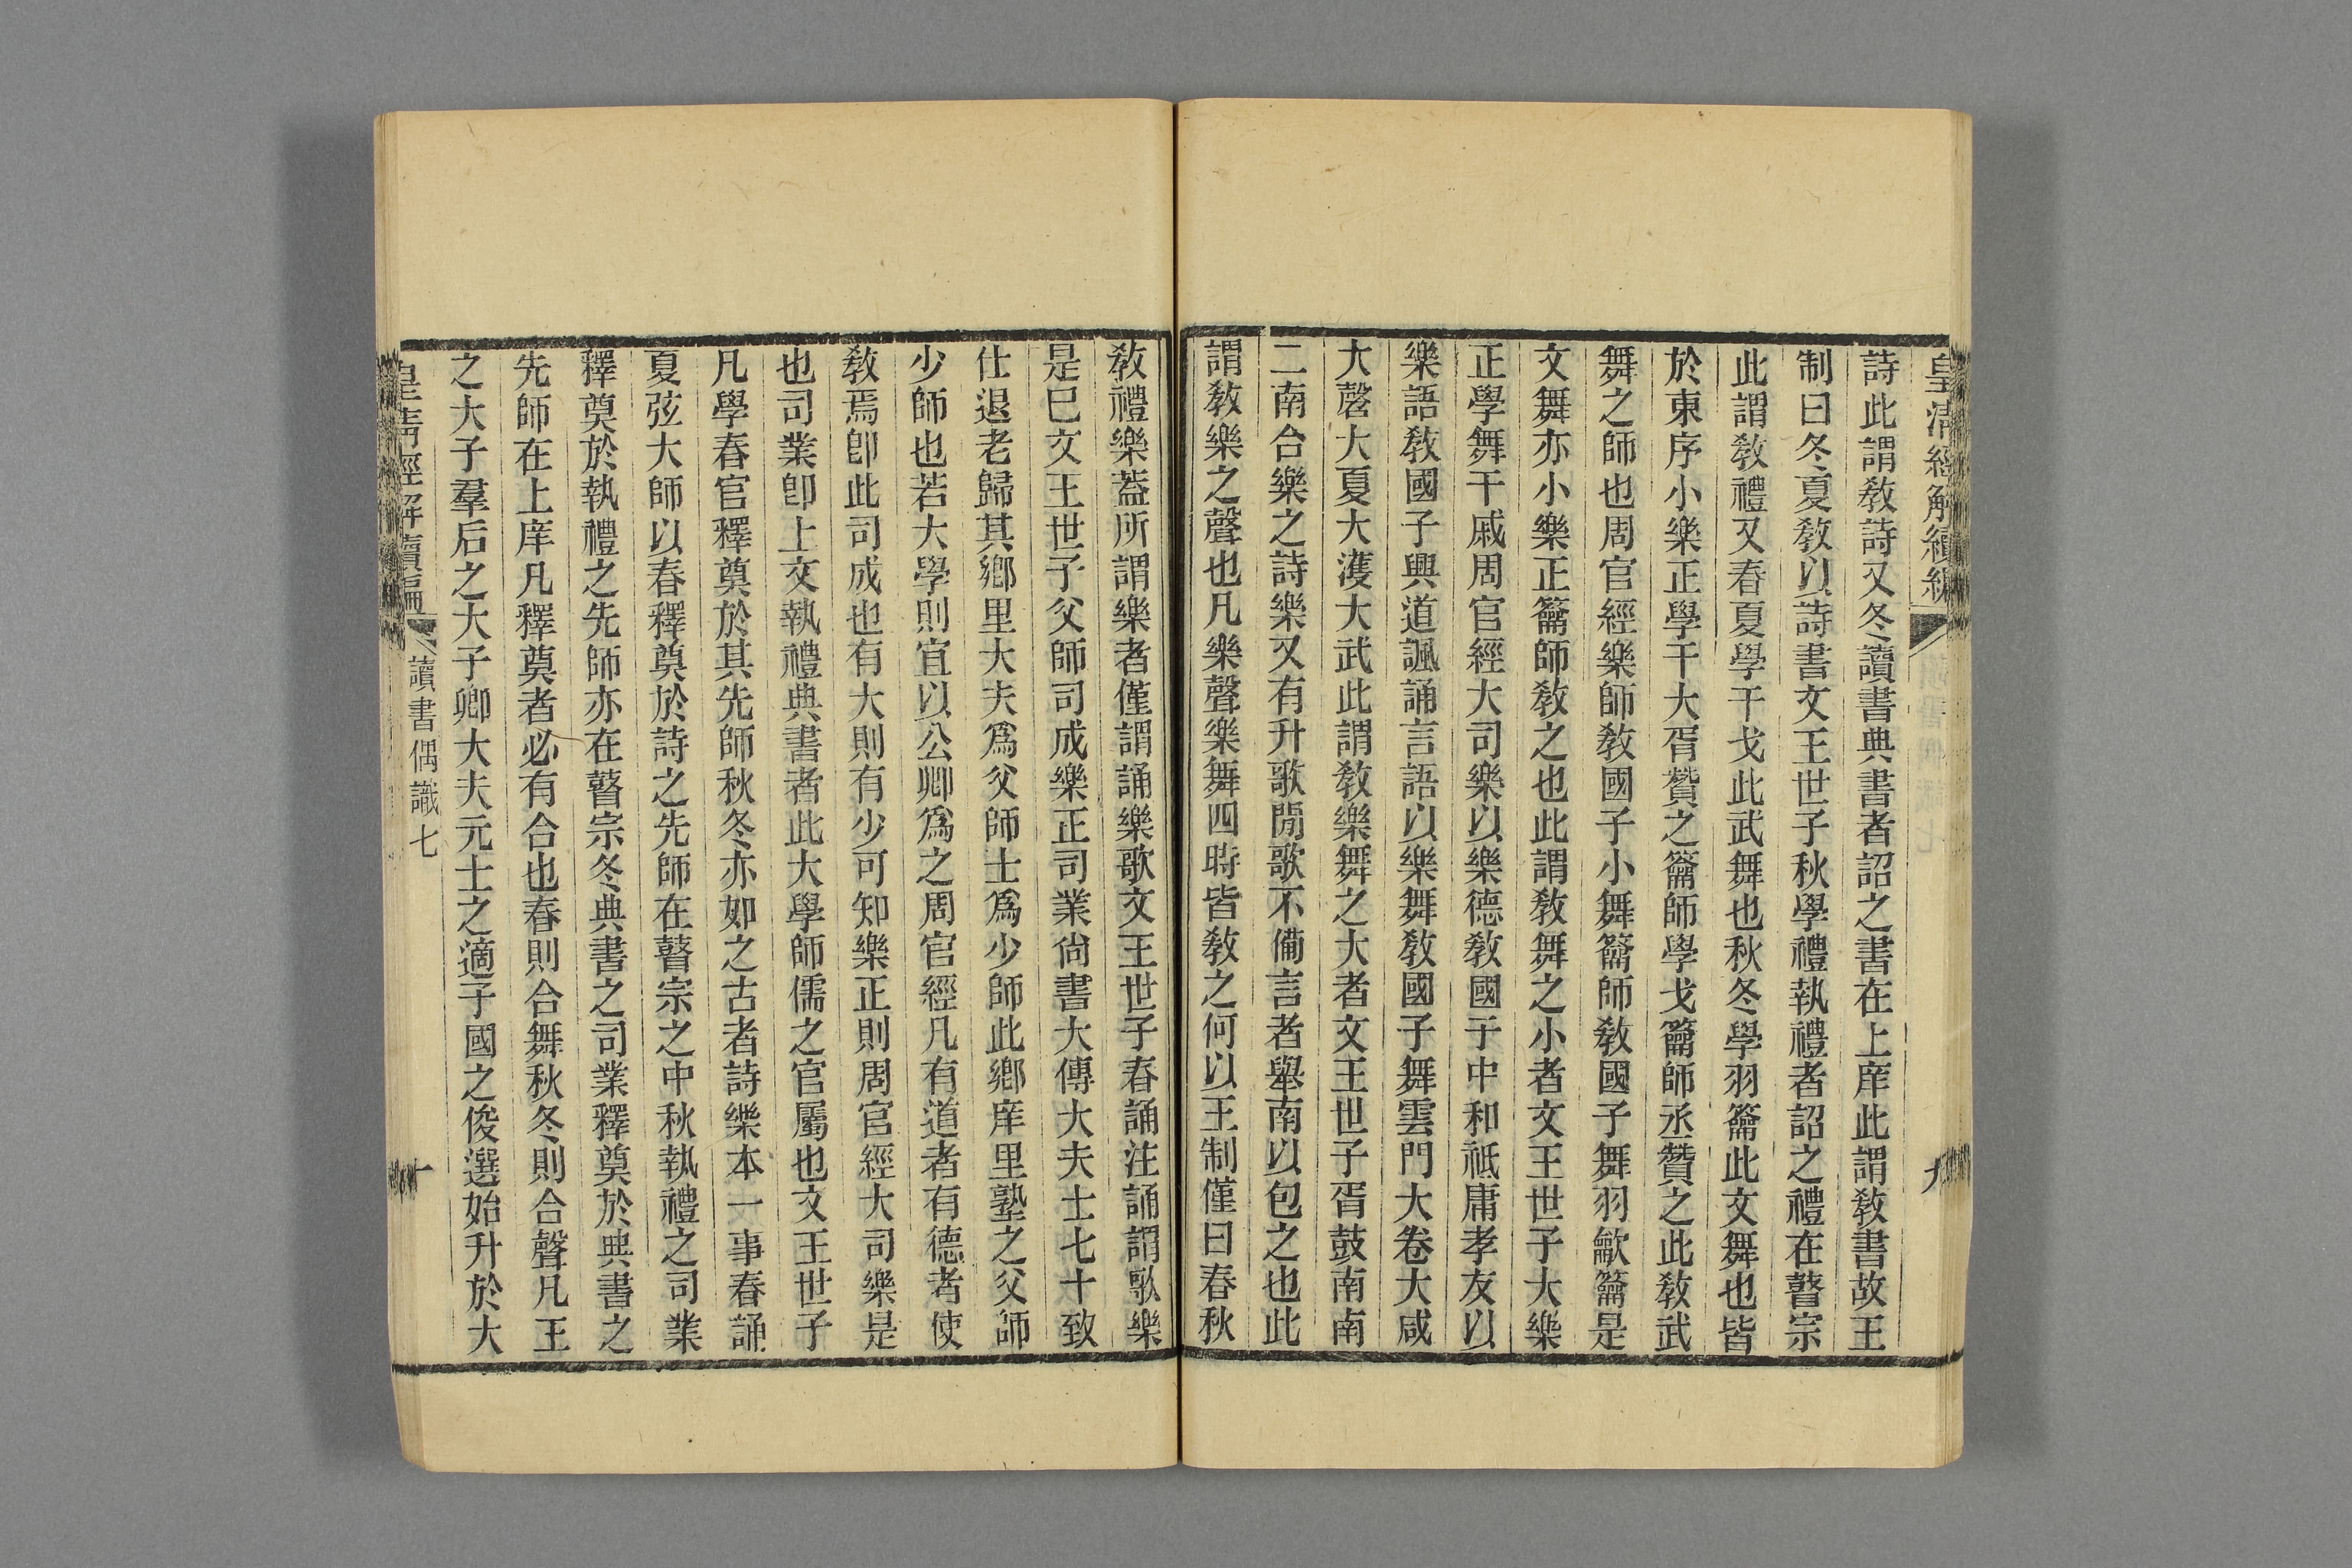 皇清經解續編
九
詩此謂敎詩又冬讀書典書者詔之書在上庠此謂敎書故王
制曰冬夏敎以詩書文王世子秋學禮執禮者詔之禮在瞽宗
此謂敎禮又春夏學干戈此武舞也秋冬學羽籥此文舞也皆
於東序小樂正學干大胥贊之籥師學戈籥師丞贊之此敎武
舞之師也周官經樂師敎國子小舞籥師敎國子舞羽龡籥是
文舞亦小樂正籥師敎之也此謂敎舞之小者文王世子大樂
正學舞干戚周官經大司樂以樂德敎國子中和祗庸孝友以
樂語敎國子興道諷誦言語以樂舞敎國子舞雲門大卷大咸
大磬大夏大濩大武此謂敎樂舞之大者文王世子胥鼓南南
二南合樂之詩樂又有升歌閒歌不備言者舉南以包之也此
謂敎樂之聲也凡樂聲樂舞四時皆敎之何以王制僅曰春秋
敎禮樂葢所謂樂者僅謂誦樂歌文王世子春誦注誦謂歌樂
是巳文王世子父師司成樂正司業尙書大傳大夫士七十致
仕退老歸其鄕里大夫爲父師士爲少師此鄕庠里塾之父師
少師也若大學則宜以公卿爲之周官經凡有道者有德者使
敎焉卽此司成也有大則有少可知樂正則周官經大司樂是
也司業卽上文執禮典書者此大學師儒之官屬也文王世子
凡學春官釋奠於其先師秋冬亦如之古者詩樂本一事春誦
夏弦大師以春釋奠於詩之先師在瞽宗之中秋執禮之司業
釋奠於執禮之先師亦在瞽宗冬典書之司業釋奠於典書之
先師在上庠凡釋奠者必有合也春則合舞秋冬則合聲凡王
之大子羣后之大子卿大夫元士之適子國之俊選始升於大
皇清經解續編
讀書偶識七
十